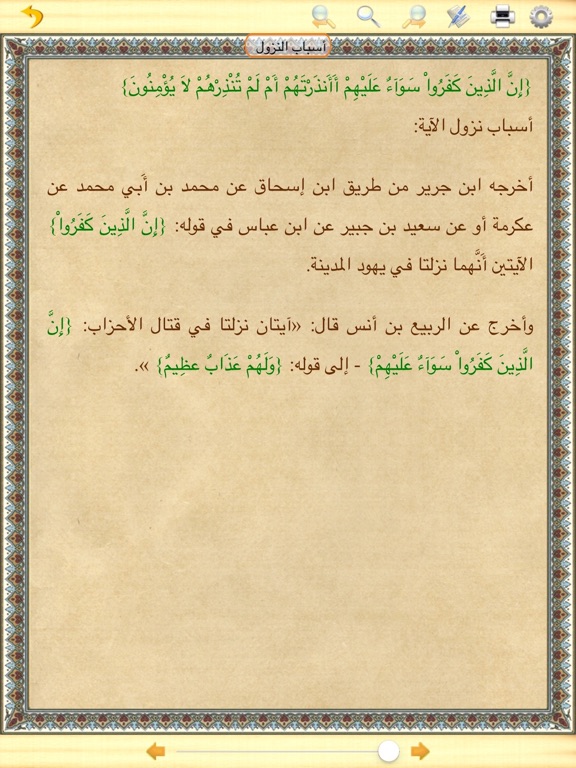 أسباب النزول
{إِنَّ الَّذِينَ كَفَرُواْ سَوَآءٌ عَلَيْهِمْ أَأَنذَرْتَهُمْ أَمْ لَمْ تُنْذِرْهُمْ لاَ يُؤْمِنُونَ}
أسباب نزول الآية:
أخرجه ابن جرير من طريق ابن إسحاق عن محمد بن أَبي محمد عن
عكرمة أو عن سعيد بن جبير عن ابن عباس في قوله: {إِنَّ الَّذِينَ كَفَرُواْ}
الآيتين أَنَّهما نزلتا في يهود المدينة.
وأخرج عن الربيع بن أنس قال: «آيتان نزلتا في قتال الأحزاب: {إِنَّ
الَّذِينَ كَفَرُواْ سَوَآءٌ عَلَيْهِمْ} - إلى قوله: {وَلَهُمْ عَذَابٌ عظِيمٌ} ».